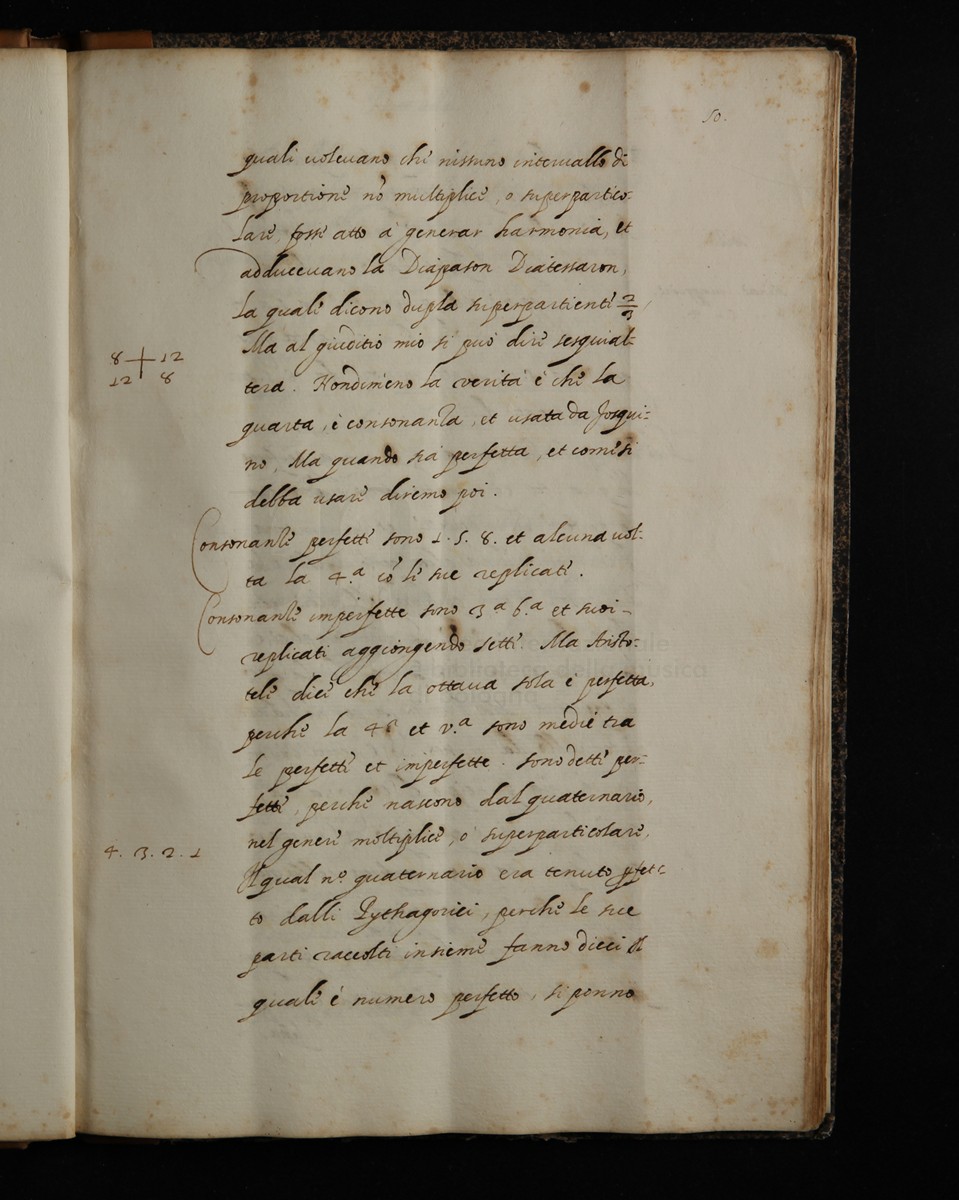 50.
quali uoleuano che nissuno interuallo di
proportione nō multiplice, o superpartico-
lare, fosse atto à generar harmonia, et
adduceuano la Diapason Diatessaron,
la quale dicono dupla superpartiente 2/3,
Ma al giuditio mio si può dire sesquial-
8 12
12 8
tera. Nondimeno la verità è che la
quarta, è consonanza, et usata da Josqui-
no, Ma quando sia perfetta, et come si
debba usare diremo poi.
Consonanze perfette sono 1. 5. 8. et alcuna uol-
ta la 4.a cō le sue replicate.
Consonanze imperfette sono 3a 6.a et suoi
replicati aggiongendo sette. Ma Aristo-
tele dice che la ottaua sola è perfetta,
perche la 4a et v.a sono medie tra
le perfette et imperfette. sono dette per-
fette, perche nascono dal quaternario,
nel genere moltiplice, o superparticolare,
4. 3. 2. 1
Il qual no. quaternario era tenuto pfet-
to dalli Pythagorici, perche le sue
parti raccolte insieme fanno dieci il
quale è numero perfetto, si ponno